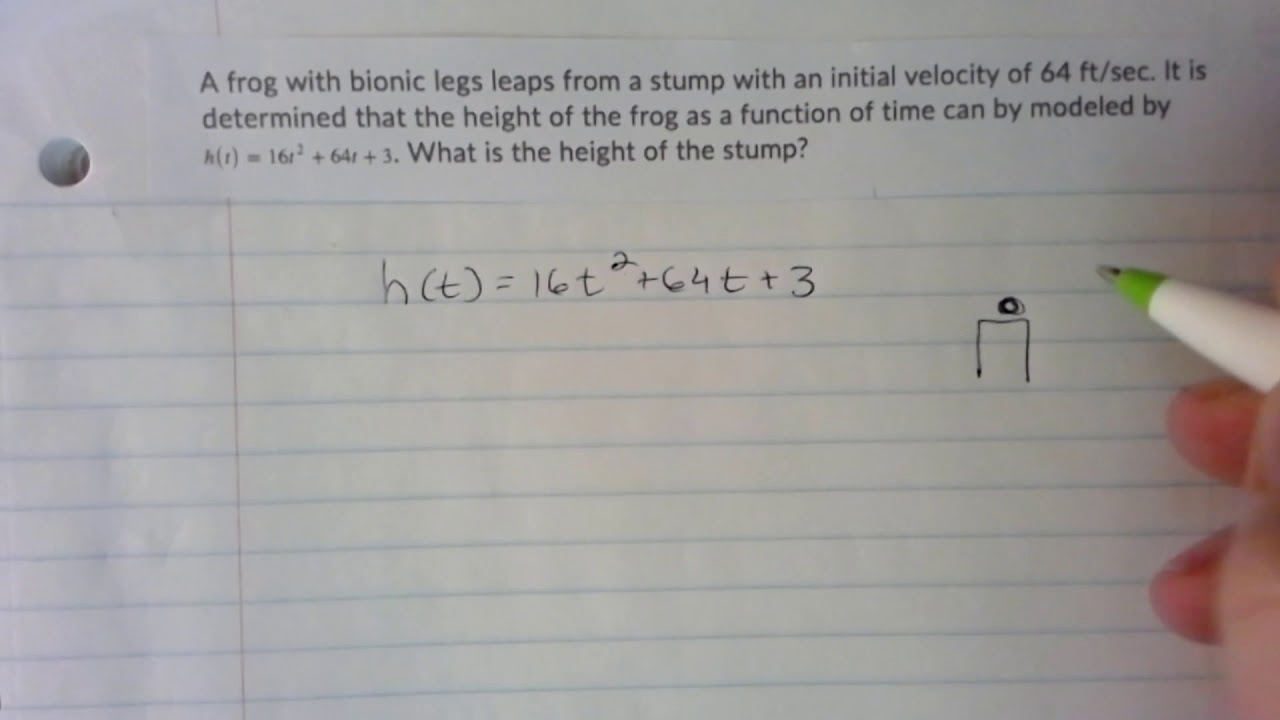 A frog with bionic legs leaps from a stump with an initial velocity of 64 ft/sec. It is
determined that the height of the frog as a function of time can by modeled by
h(t) = 16t² + 64t + 3. What is the height of the stump?
h(t) = 16t² + 64t + 3